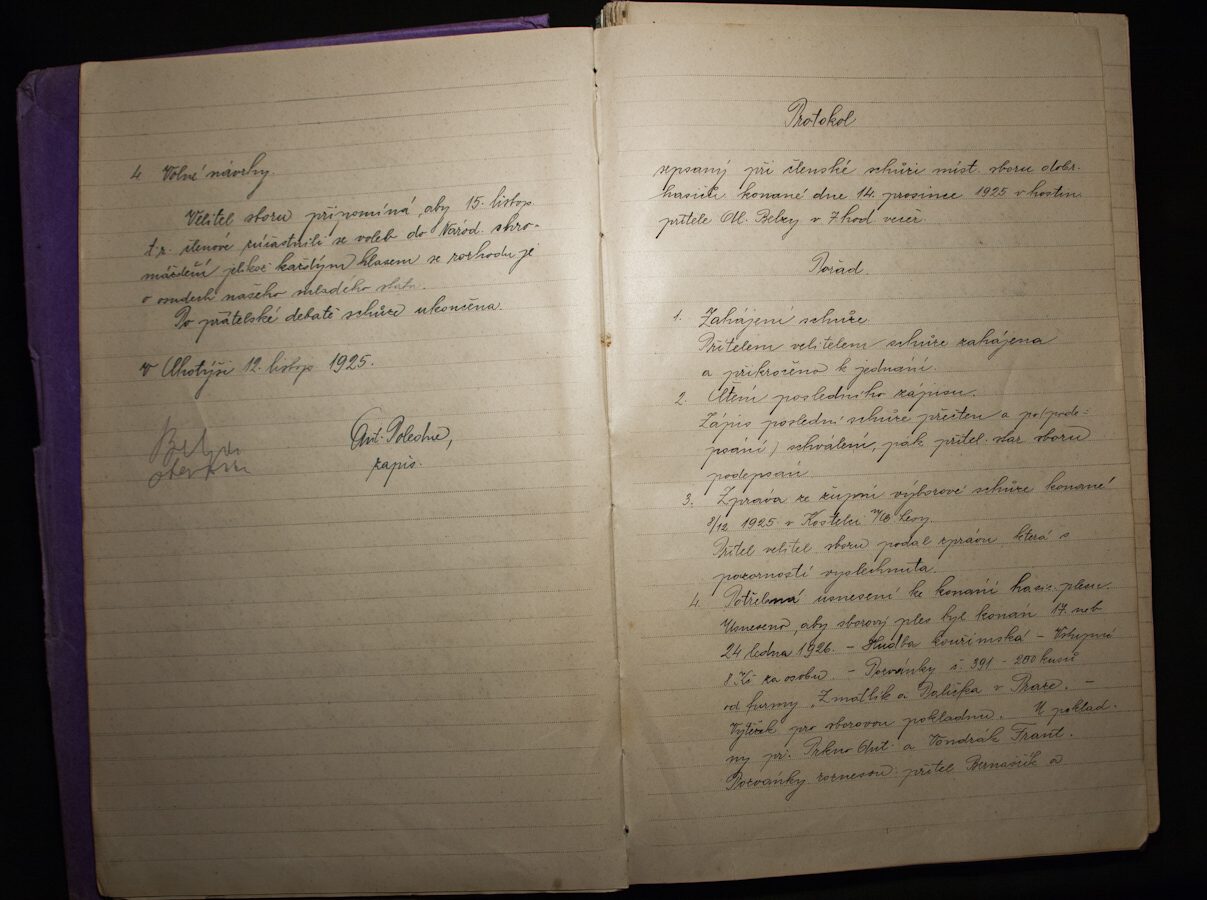 4. Volné návrhy.
Velitel sboru připomíná, aby 15. listop.
t.r. členové zúčastnili se voleb do Národ. shro-
máždění jelikož každým hlasem se rozhoduje
o osudech našeho mladého státu.
Po přátelské debatě schůze ukončena.
V Lhotýši 12. listop 1925.
Ant. Poledne,
zapis.
Protokol
sepsaný při členské schůzi míst. sboru dobr.
hasičů konané dne 14. prosince 1925 v hostin.
přítele Al. Belzy v 7 hod večer.
Pořad
1. Zahájení schůze.
Přítelem velitelem schůze zahájena
a přikročeno k jednání.
2. Čtení posledního zápisu.
Zápis poslední schůze přečten a po (pode-
psání) schválení, pak přítel. star sboru
podepsán
3. Zpráva ze župní výborové schůze konané
8/12 1925 v Kostelci n/Č. Lesy.
Přítel velitel sboru podal zprávu, která s
pozorností vyslechnuta.
4. Potřebná usnesení ke konání hasič. plesu.
Usneseno, aby sborový ples byl konán 17. neb
24 ledna 1926. – Hudba kouřimská – Vstupné
8 Kč za osobu. – Pozvánky č. 391 – 200 kusů
od firmy Zmatlík a Palička v Praze. –
Výtěžek pro sborovou pokladnu. U poklad-
ny př. Prkno Ant. a Vondrák Frant.
Pozvánky roznesou: přítel Bernášik a